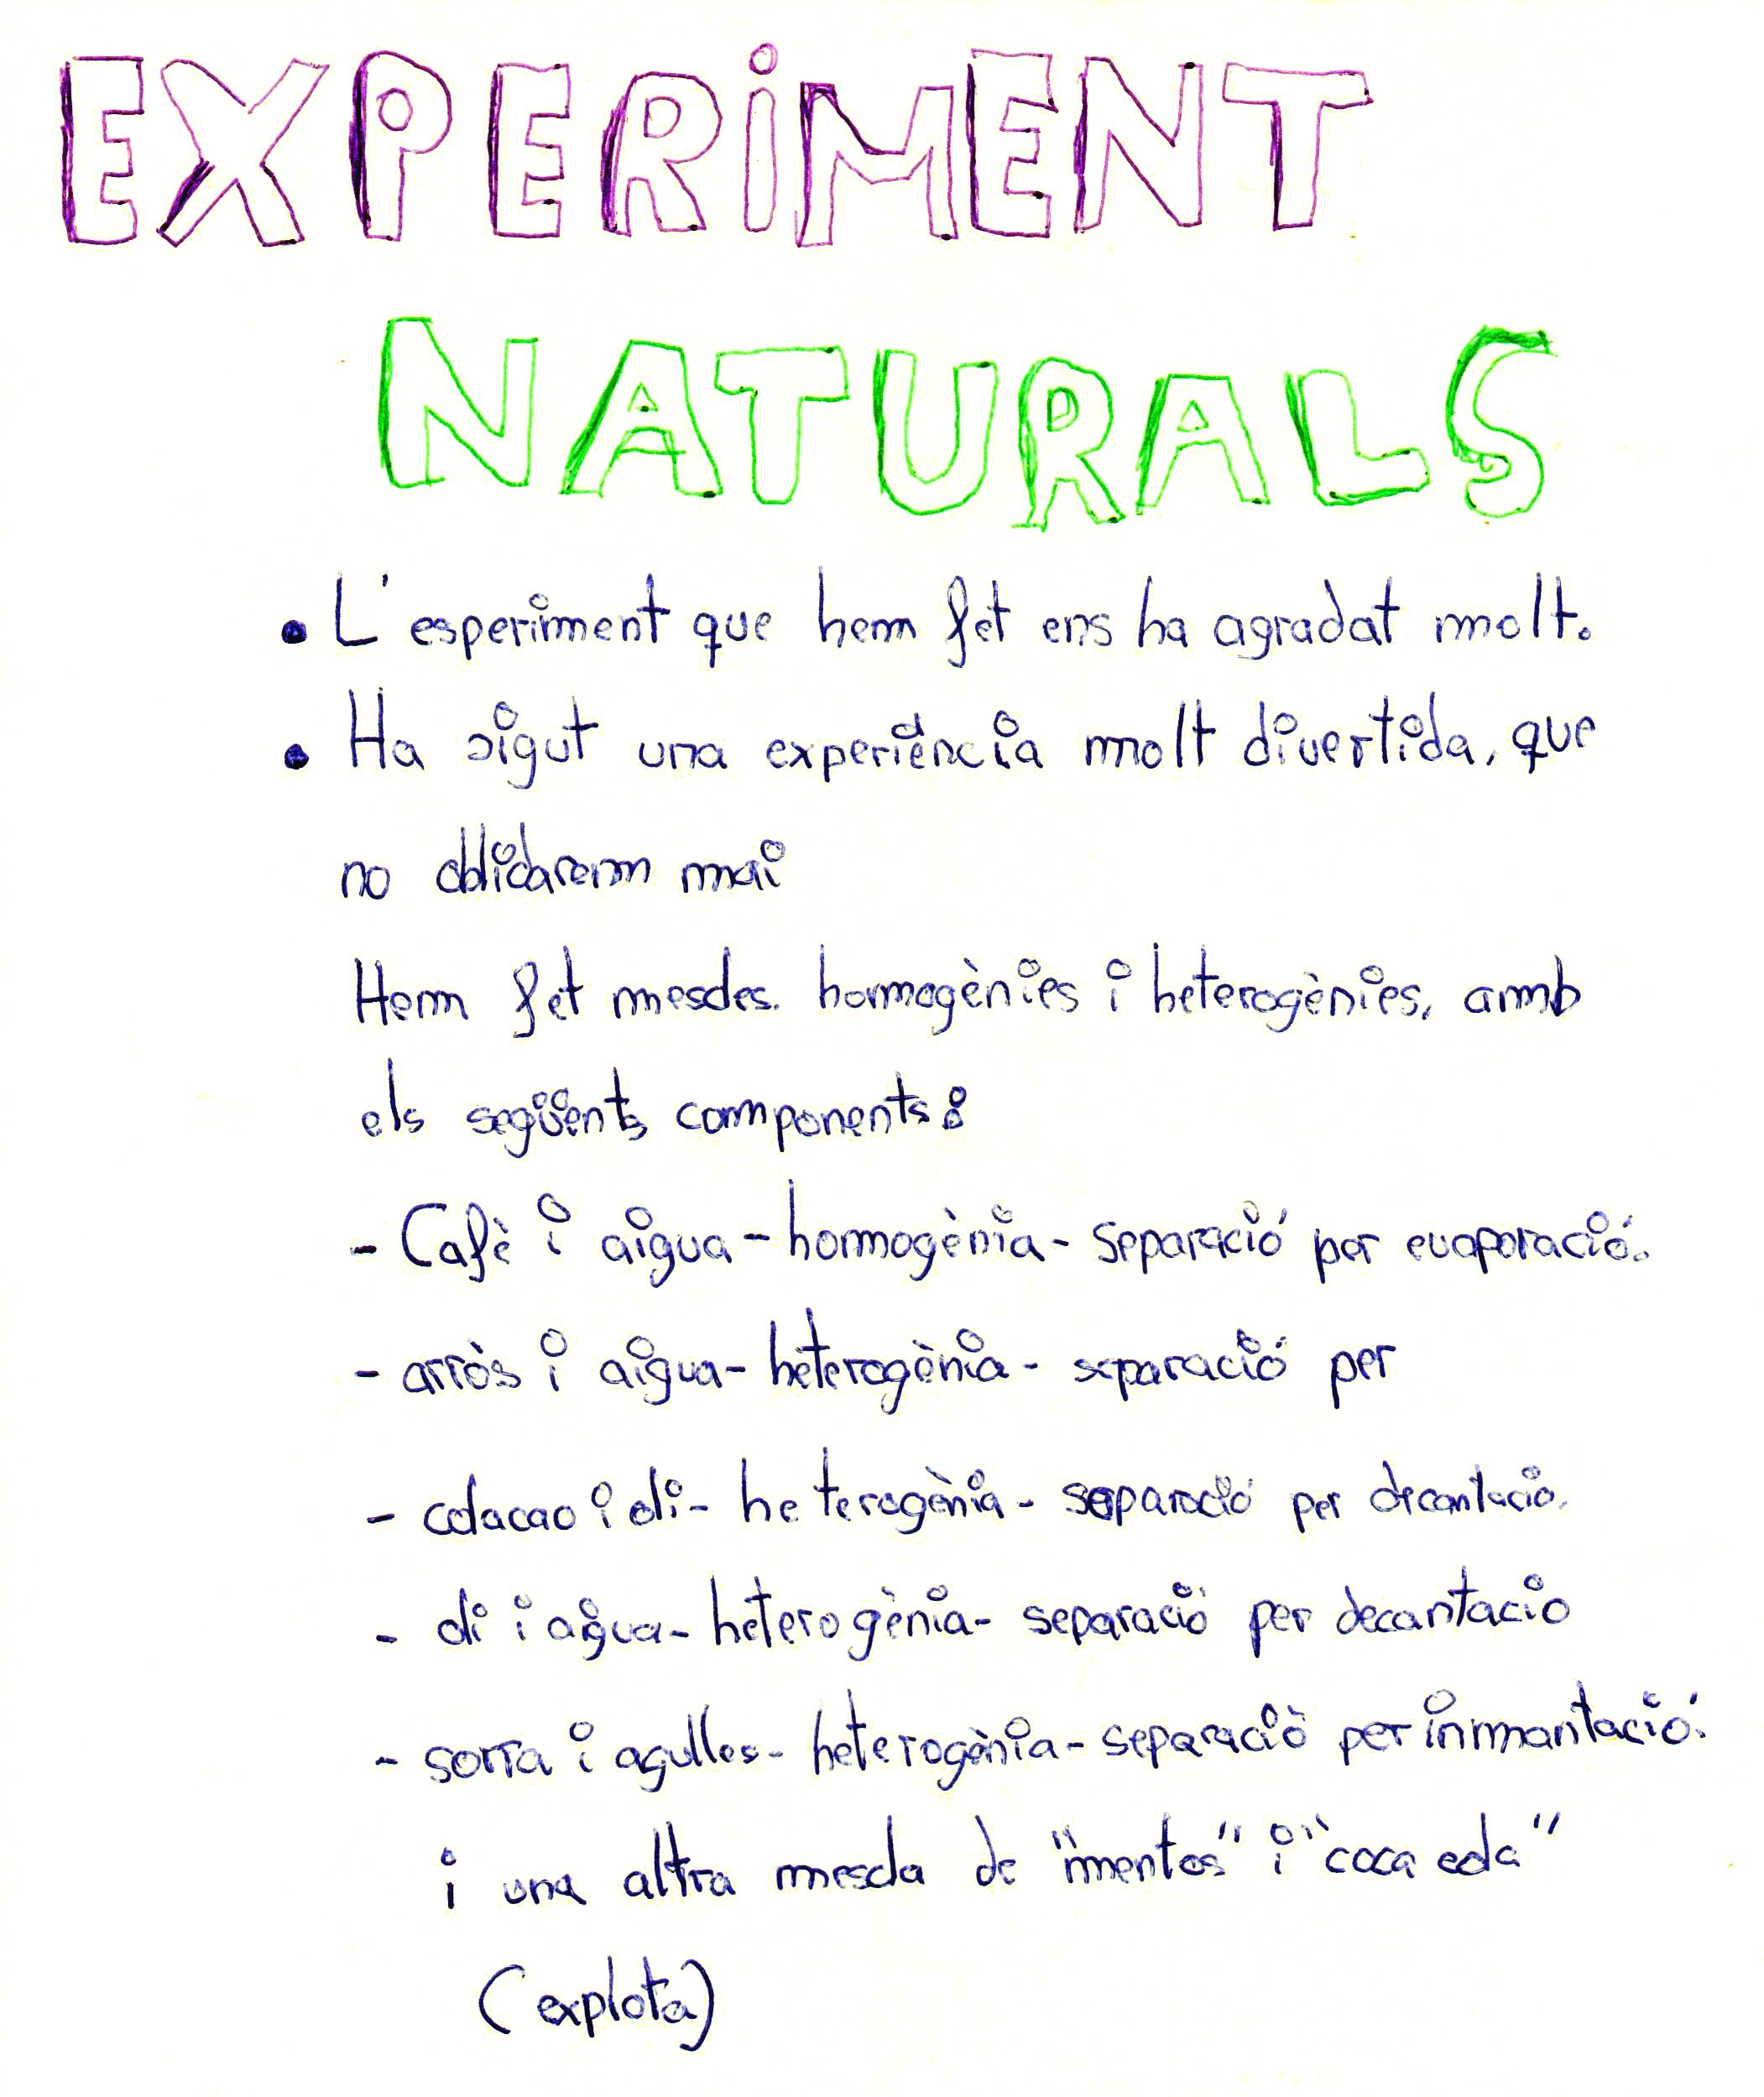 EXPERiMENT
NATURALS
• L'esperiment que hem fet ens ha agradat molt.
• Ha sigut una experiència molt divertida, que
no oblidarem mai
Hem fet mescles homogènies i heterogènies, amb
els següents components:
- Cafè i aigua - homogènia - separació per evaporació.
- arròs i aigua - heterogènia - separació per
- colacao i oli - heterogènia - separació per decantacio.
- oli i aigua - heterogènia - separació per decantacio
- sorra i agulles - heterogènia - separaciò per inmantació.
i una altra mescla de "mentos" i "coca cola"
(explota)